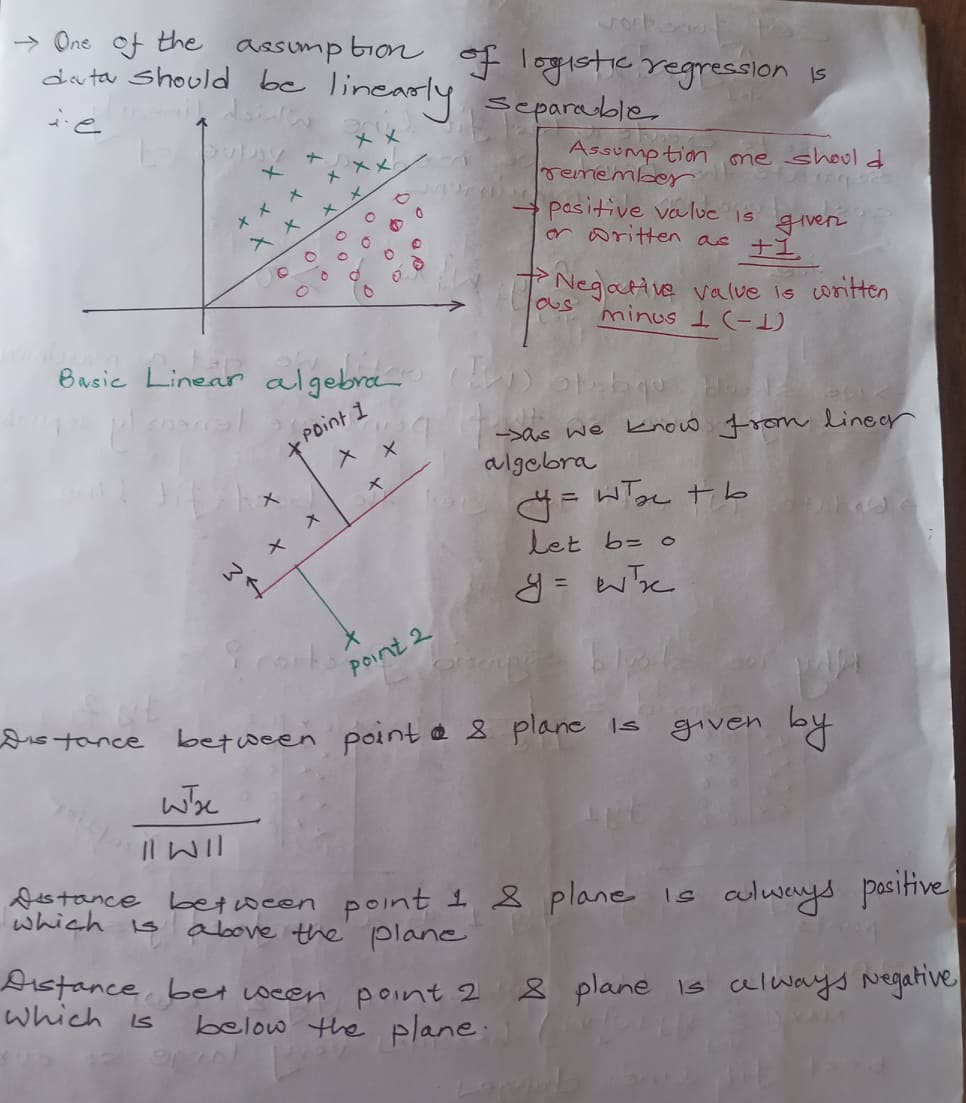 → One of the assumption of logistic regression is
data should be linearly separable
i.e
Assumption one should
remember
→ positive value is given
or written as +1
→ Negative value is written
as minus 1 (-1)
Basic Linear algebra
point 1
W
point 2
→ as we know from linear
algebra
y = Wᵀx + b
let b = 0
y = Wᵀx
Distance between point & plane is given by
Wᵀx
||W||
Distance between point 1 & plane is always positive
which is above the plane
Distance between point 2 & plane is always Negative
which is below the plane.